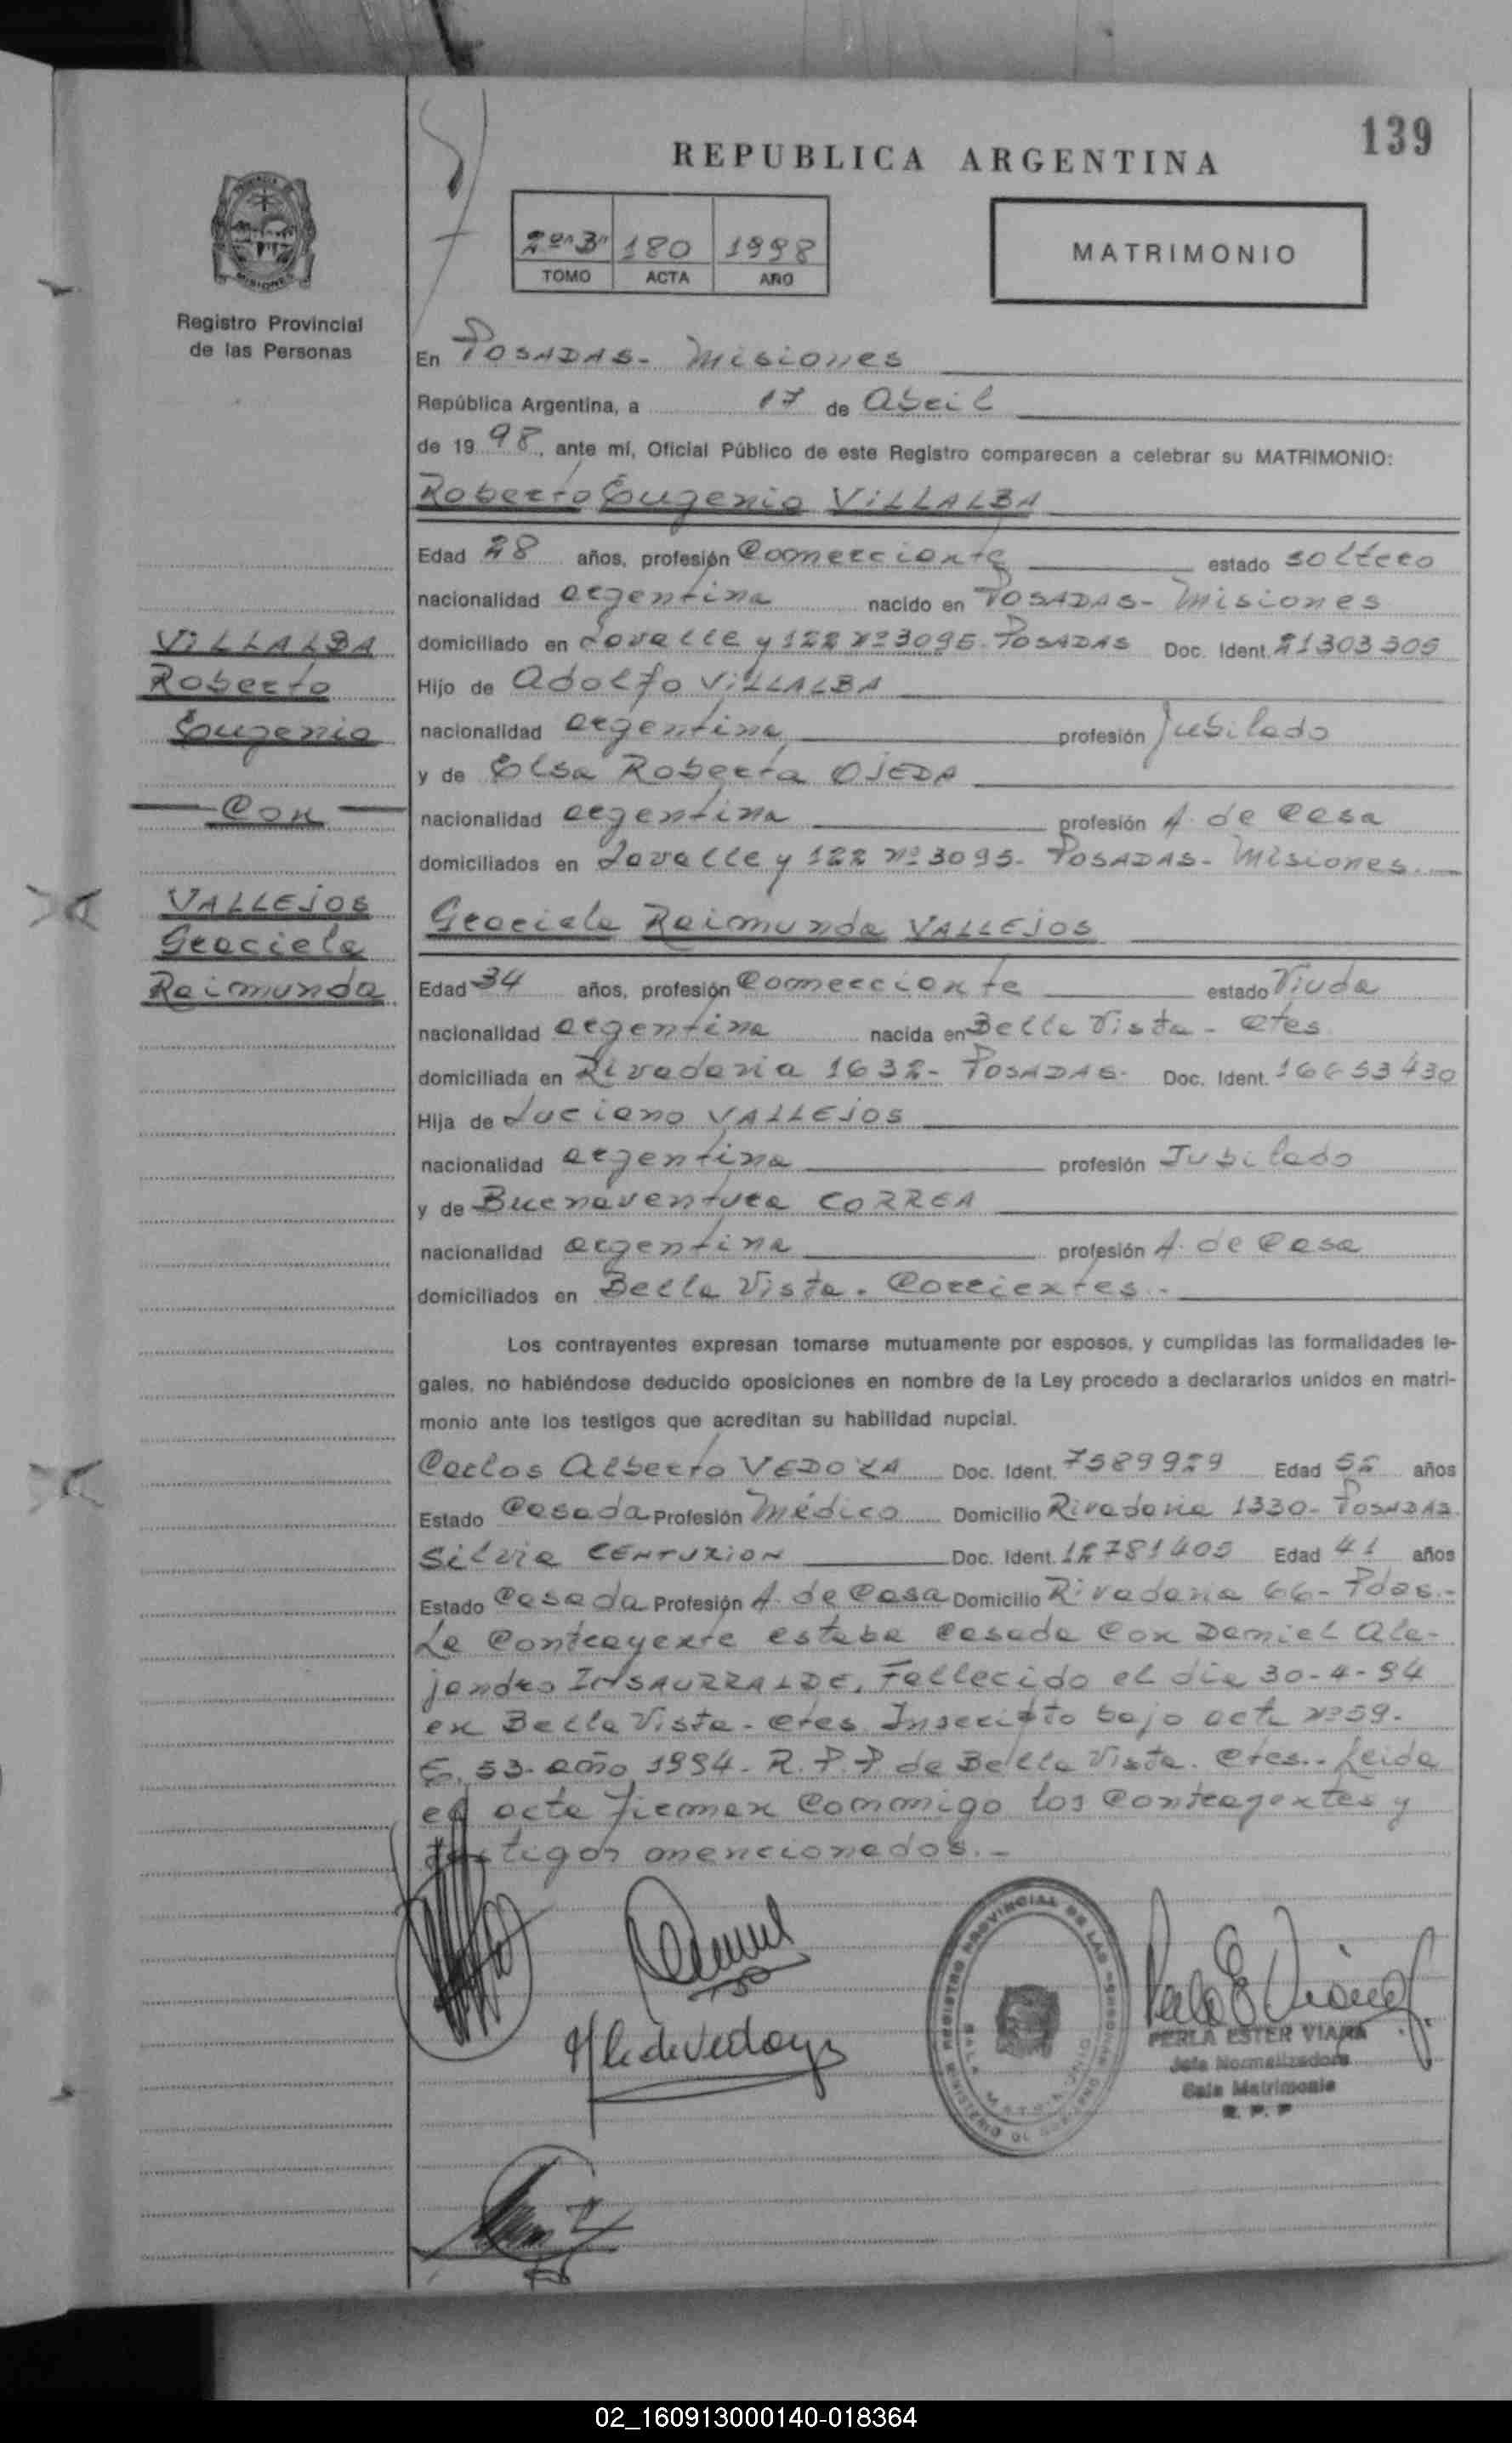 139
REPUBLICA ARGENTINA
2º "B" 180 1998
TOMO ACTA AÑO
MATRIMONIO
Registro Provincial
de las Personas
En POSADAS - Misiones
República Argentina, a 17 de Abril
de 19 98, ante mí, Oficial Público de este Registro comparecen a celebrar su MATRIMONIO:
Roberto Eugenio VILLALBA
Edad 28 años, profesión Comerciante estado soltero
nacionalidad argentina nacido en POSADAS - Misiones
domiciliado en Lavalle y 122 nº 3095 - POSADAS Doc. Ident. 21303305
Hijo de Adolfo VILLALBA
nacionalidad argentina profesión Jubilado
y de Elsa Roberta OJEDA
nacionalidad argentina profesión A. de Casa
domiciliados en Lavalle y 122 nº 3095 - POSADAS - Misiones.
VILLALBA
Roberto
Eugenio
Con
VALLEJOS
Graciela
Raimunda
Graciela Raimunda VALLEJOS
Edad 34 años, profesión Comerciante estado Viuda
nacionalidad argentina nacida en Bella Vista - Ctes
domiciliada en Rivadavia 1632 - POSADAS - Doc. Ident. 16653430
Hija de Luciano VALLEJOS
nacionalidad argentina profesión Jubilado
y de Buenaventura CORREA
nacionalidad argentina profesión A. de Casa
domiciliados en Bella Vista - Corrientes -
Los contrayentes expresan tomarse mutuamente por esposos, y cumplidas las formalidades le-
gales, no habiéndose deducido oposiciones en nombre de la Ley procedo a declararlos unidos en matri-
monio ante los testigos que acreditan su habilidad nupcial.
Carlos Alberto VEDOYA Doc. Ident. 7589929 Edad 52 años
Estado Casado Profesión Médico Domicilio Rivadavia 1330 - POSADAS
Silvia CENTURION Doc. Ident. 12781405 Edad 41 años
Estado Casada Profesión A. de Casa Domicilio Rivadavia 66 - Pdas. -
La Contrayente estaba casada con Daniel Ale-
jandro INSAURRALDE, Fallecido el día 30-4-94
en Bella Vista - Ctes Inscripto bajo acta nº 59.
53 - año 1994 - R.P.P de Bella Vista. Ctes. - Leida
el acta firman conmigo los contrayentes y
testigos mencionados. -
REGISTRO PROVINCIAL DE LAS PERSONAS
MINISTERIO DE GOBIERNO
PERLA ESTER VIANA
Jefe Normalizadora
Sala Matrimonio
R. P. P
02_160913000140-018364